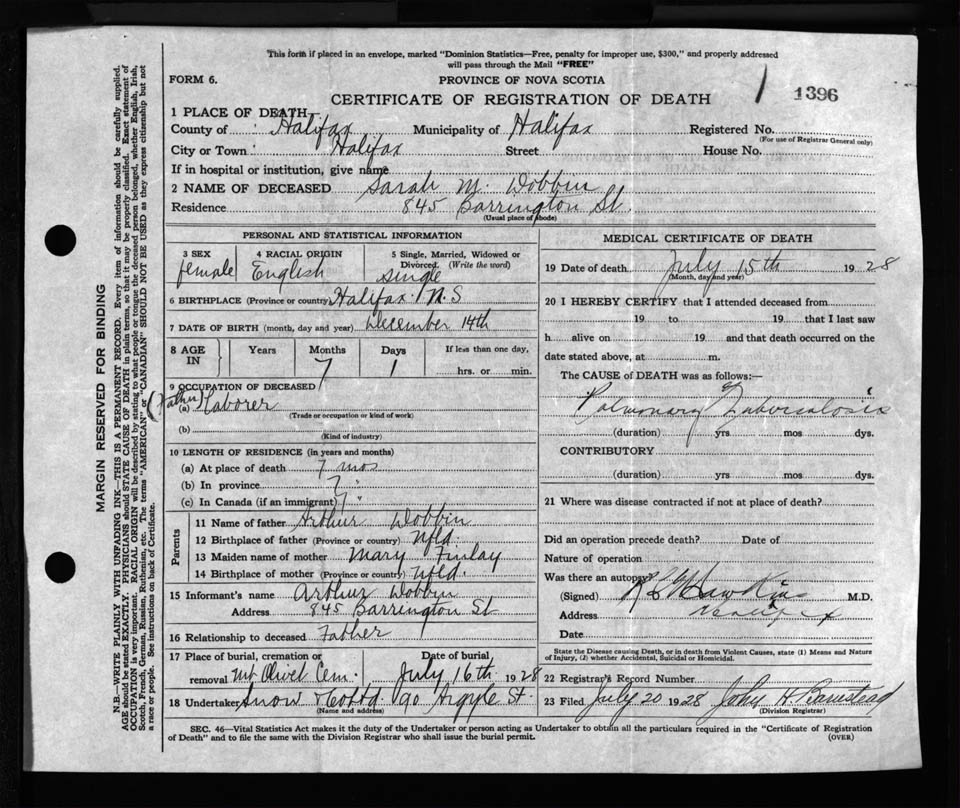 This form if placed in an envelope, marked "Dominion Statistics—Free, penalty for improper use, $300," and properly addressed
will pass through the Mail "FREE"
FORM 6.
PROVINCE OF NOVA SCOTIA
CERTIFICATE OF REGISTRATION OF DEATH
1396
1 PLACE OF DEATH
County of Halifax Municipality of Halifax Registered No.
(For use of Registrar General only)
City or Town Halifax Street House No.
If in hospital or institution, give name
2 NAME OF DECEASED Sarah M. Dobbin
Residence 845 Barrington St.
(Usual place of abode)
PERSONAL AND STATISTICAL INFORMATION
3 SEX 4 RACIAL ORIGIN 5 Single, Married, Widowed or
Divorced. (Write the word)
female English single
6 BIRTHPLACE (Province or country) Halifax N.S
7 DATE OF BIRTH (month, day and year) December 14th
8 AGE IN Years Months Days If less than one day,
7 1 hrs. or min.
9 OCCUPATION OF DECEASED
(father)
(a) Laborer
(Trade or occupation or kind of work)
(b)
(Kind of industry)
10 LENGTH OF RESIDENCE (in years and months)
(a) At place of death 7 mos
(b) In province 7 "
(c) In Canada (if an immigrant) 7 "
Parents
11 Name of father Arthur Dobbin
12 Birthplace of father (Province or country) Nfld.
13 Maiden name of mother Mary Finlay
14 Birthplace of mother (Province or country) Nfld.
15 Informant's name Arthur Dobbin
Address 845 Barrington St
16 Relationship to deceased Father
17 Place of burial, cremation or Date of burial
removal Mt Olivet Cem. July 16th 1928
18 Undertaker Snow & 90 Argyle St.
(Name and address)
MEDICAL CERTIFICATE OF DEATH
19 Date of death July 15th 1928
(Month, day and year)
20 I HEREBY CERTIFY that I attended deceased from
19 to 19 that I last saw
h alive on 19 and that death occurred on the
date stated above, at m.
The CAUSE of DEATH was as follows:—
Pulmonary Tuberculosis
(duration) yrs mos dys.
CONTRIBUTORY
(duration) yrs mos dys.
21 Where was disease contracted if not at place of death?
Did an operation precede death? Date of
Nature of operation
Was there an autopsy
(Signed) Hawkins M.D.
Address Halifax
Date
State the Disease causing Death, or in death from Violent Causes, state (1) Means and Nature
of Injury, (2) whether Accidental, Suicidal or Homicidal.
22 Registrar's Record Number
23 Filed July 20 1928 John H. Barnstead
(Division Registrar)
SEC. 46—Vital Statistics Act makes it the duty of the Undertaker or person acting as Undertaker to obtain all the particulars required in the "Certificate of Registration
of Death" and to file the same with the Division Registrar who shall issue the burial permit.
(OVER)
MARGIN RESERVED FOR BINDING
N.B.—WRITE PLAINLY WITH UNFADING INK—THIS IS A PERMANENT RECORD. Every item of information should be carefully supplied.
AGE should be stated EXACTLY. PHYSICIANS should STATE CAUSE OF DEATH in plain terms, so that it may be properly classified. Exact statement of
OCCUPATION is very important. RACIAL ORIGIN will be described by stating to what people or tongue the deceased person belonged, whether English, Irish,
Scotch, French, German, Russian, Ruthenian, etc. The terms "AMERICAN" or "CANADIAN" SHOULD NOT BE USED as they express citizenship but not
a race or people. See instructions on back of Certificate.